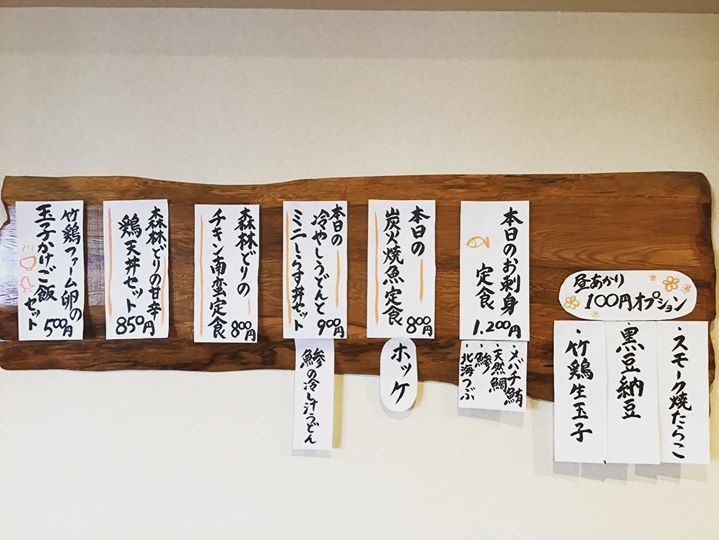 本日のお刺身
定食
1,200円
・メバチ鮪
・天然鯛
・鯵
・北海つぶ
本日の
炭火焼魚定食
800円
ホッケ
本日の
冷やしうどんと
ミニしらす丼セット
900円
鯵の冷し汁うどん
森林どりの
チキン南蛮定食
800円
森林どりの甘辛
鶏天丼セット
850円
竹鶏ファーム卵の
玉子かけご飯
セット
500円
昼あかり
100円オプション
・スモーク焼たらこ
・黒豆納豆
・竹鶏生玉子